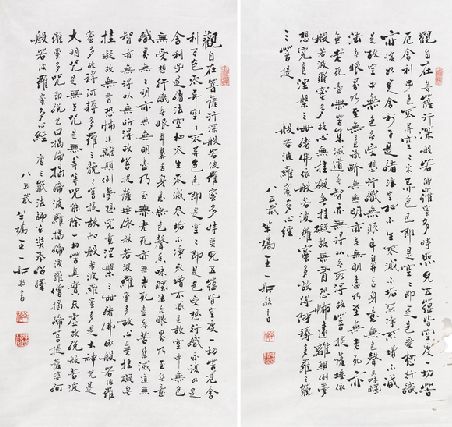 觀自在菩薩行深般若波羅蜜多時照見五蘊皆空度一切苦
厄舍利子色不異空空不異色色即是空空即是色受想行識
亦復如是舍利子是諸法空相不生不滅不垢不淨不增不減
是故空中無色無受想行識無眼耳鼻舌身意無色聲香味觸
法無眼界乃至無意識界無無明亦無無明盡乃至無老死亦
無老死盡無苦集滅道無智亦無得以無所得故菩提薩埵依
般若波羅蜜多故心無罣礙無罣礙故無有恐怖遠離顛倒夢
想究竟涅槃三世諸佛依般若波羅蜜多故得阿耨多羅三藐
三菩提
般若波羅蜜多心經
八五歲 王一
觀自在菩薩行深般若波羅蜜多時照見五蘊皆空度一切苦厄舍
利子色不異空空不異色色即是空空即是色受想行識亦復如是
舍利子是諸法空相不生不滅不垢不淨不增不減是故空中無色
無受想行識無眼耳鼻舌身意無色聲香味觸法無眼界乃至無意
識界無無明亦無無明盡乃至無老死亦無老死盡無苦集滅道無
智亦無得以無所得故菩提薩埵依般若波羅蜜多故心無罣礙無
罣礙故無有恐怖遠離顛倒夢想究竟涅槃三世諸佛依般若波羅
蜜多故得阿耨多羅三藐三菩提故知般若波羅蜜多是大神咒是
大明咒是無上咒是無等等咒能除一切苦真實不虛故說般若波
羅蜜多咒即說咒曰揭諦揭諦波羅揭諦波羅僧揭諦菩提薩婆訶
般若波羅蜜多心經 唐三藏法師玄奘奉詔譯
八五歲 王一